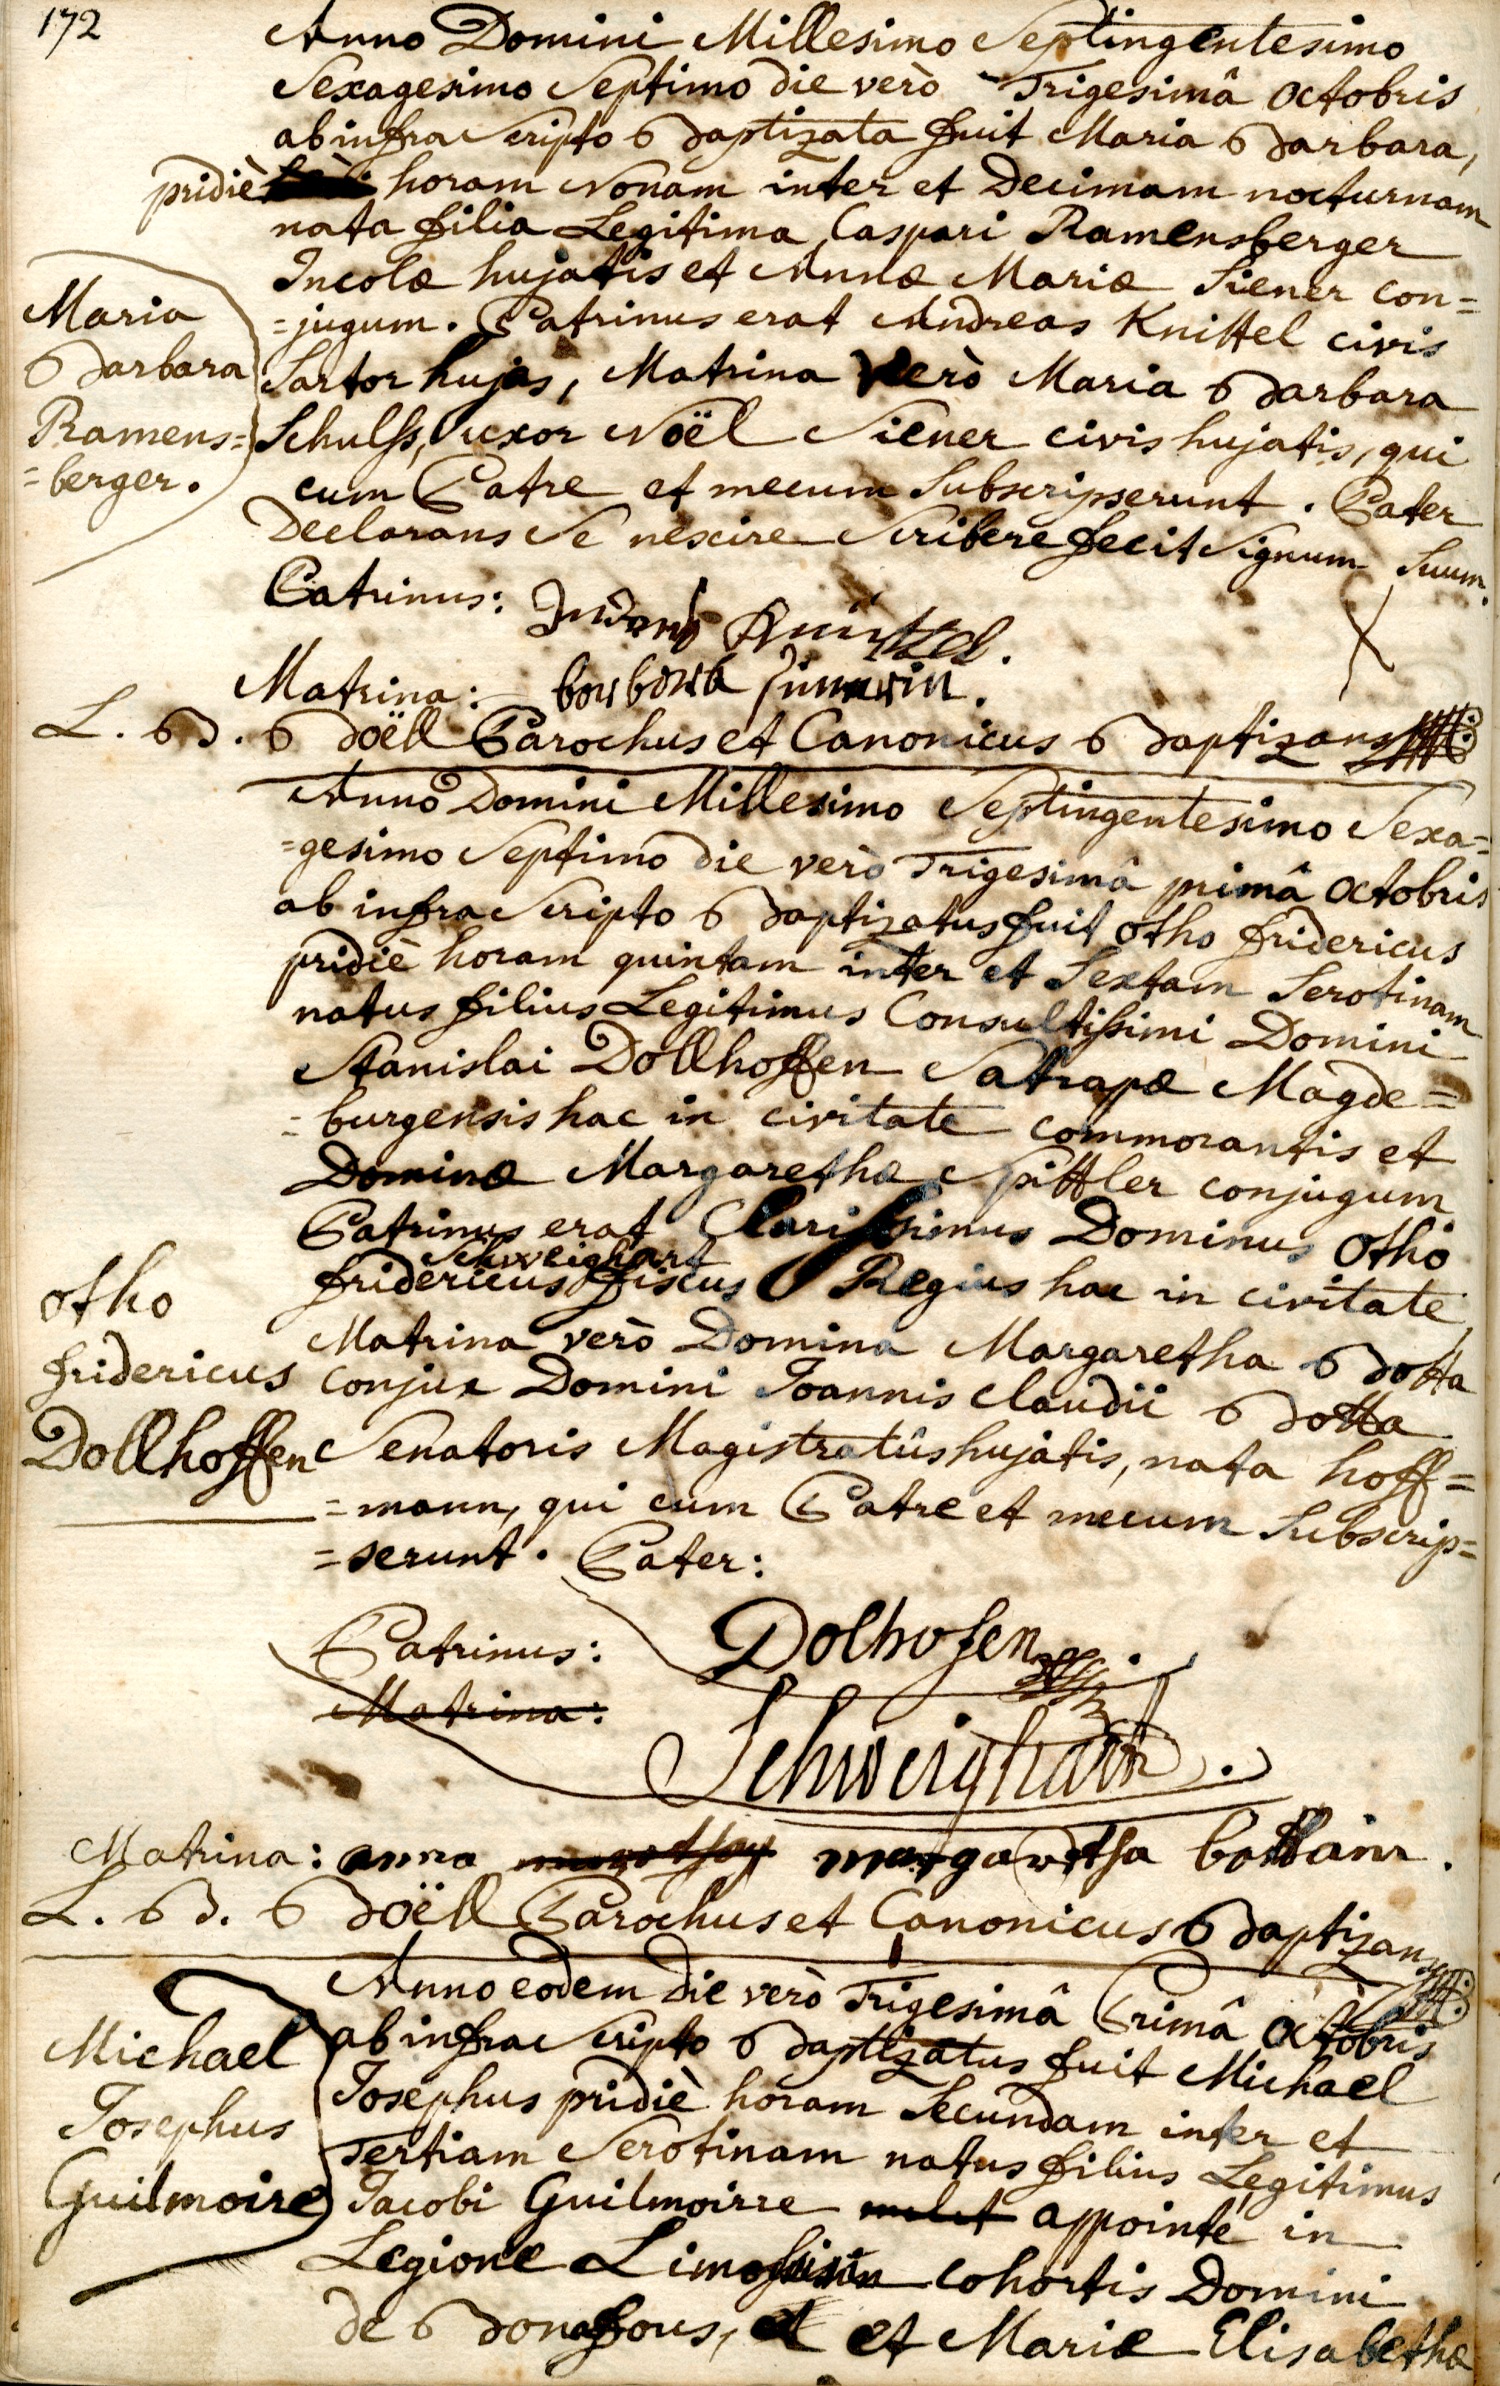 172
Anno Domini Millesimo Septingentesimo
Sexagesimo Septimo die verò Trigesimâ octobris
ab infra Scripto Baptizata fuit Maria Barbara,
pridiè horam Nonam inter et Decimam nocturnam
nata filia Legitima Caspari Ramensberger
Incolæ hujatis et Annæ Mariæ Siener con=
=jugum. Patrinus erat Andreas Knittel civis
Sartor hujas, Matrina verò Maria Barbara
Schulss, uxor Noël Siener civis hujatis, qui
cum Patre et mecum Subscripserunt. Pater
Declarans Se nescire Scribere fecit Signum Suum.
Maria
Barbara
Ramens=
=berger.
Patrinus:
X
Matrina:
L. B. Boëll Parochus et Canonicus Baptizans
Anno Domini Millesimo Septingentesimo Sexa=
=gesimo Septimo die verò Trigesimâ primâ octobris
ab infra Scripto Baptizatus fuit otho fridericus
pridiè horam quintam inter et Sextam Serotinam
natus filius Legitimus Consultissimi Domini
Stanislai Dollhoffen Satrapæ Magde=
=burgensis hac in civitate commorantis et
Dominæ Margarethæ Spittler conjugum
Patrinus erat Clarissimus Dominus otho
Schweighart
fridericus fiscus Regius hac in civitate,
Matrina verò Domina Margaretha Botta
conjux Domini Joannis Claudii Botta
Senatoris Magistratûs hujatis, nata hoff=
=mann, qui cum Patre et mecum Subscrip=
=serunt. Pater:
otho
fridericus
Dollhoffen
Dolhofen
Patrinus:
Matrina:
Schweighart.
Matrina: anna margaretha bottain.
L. B. Boëll Parochus et Canonicus Baptizans
Anno eodem die verò Trigesimâ Primâ octobris
ab infra Scripto Baptizatus fuit Michael
Josephus pridiè horam Secundam inter et
Tertiam Serotinam natus filius Legitimus
Jacobi Guilmoirre appointé in
Legione cohortis Domini
de et Mariæ Elisabethæ
Michael
Josephus
Guilmoire